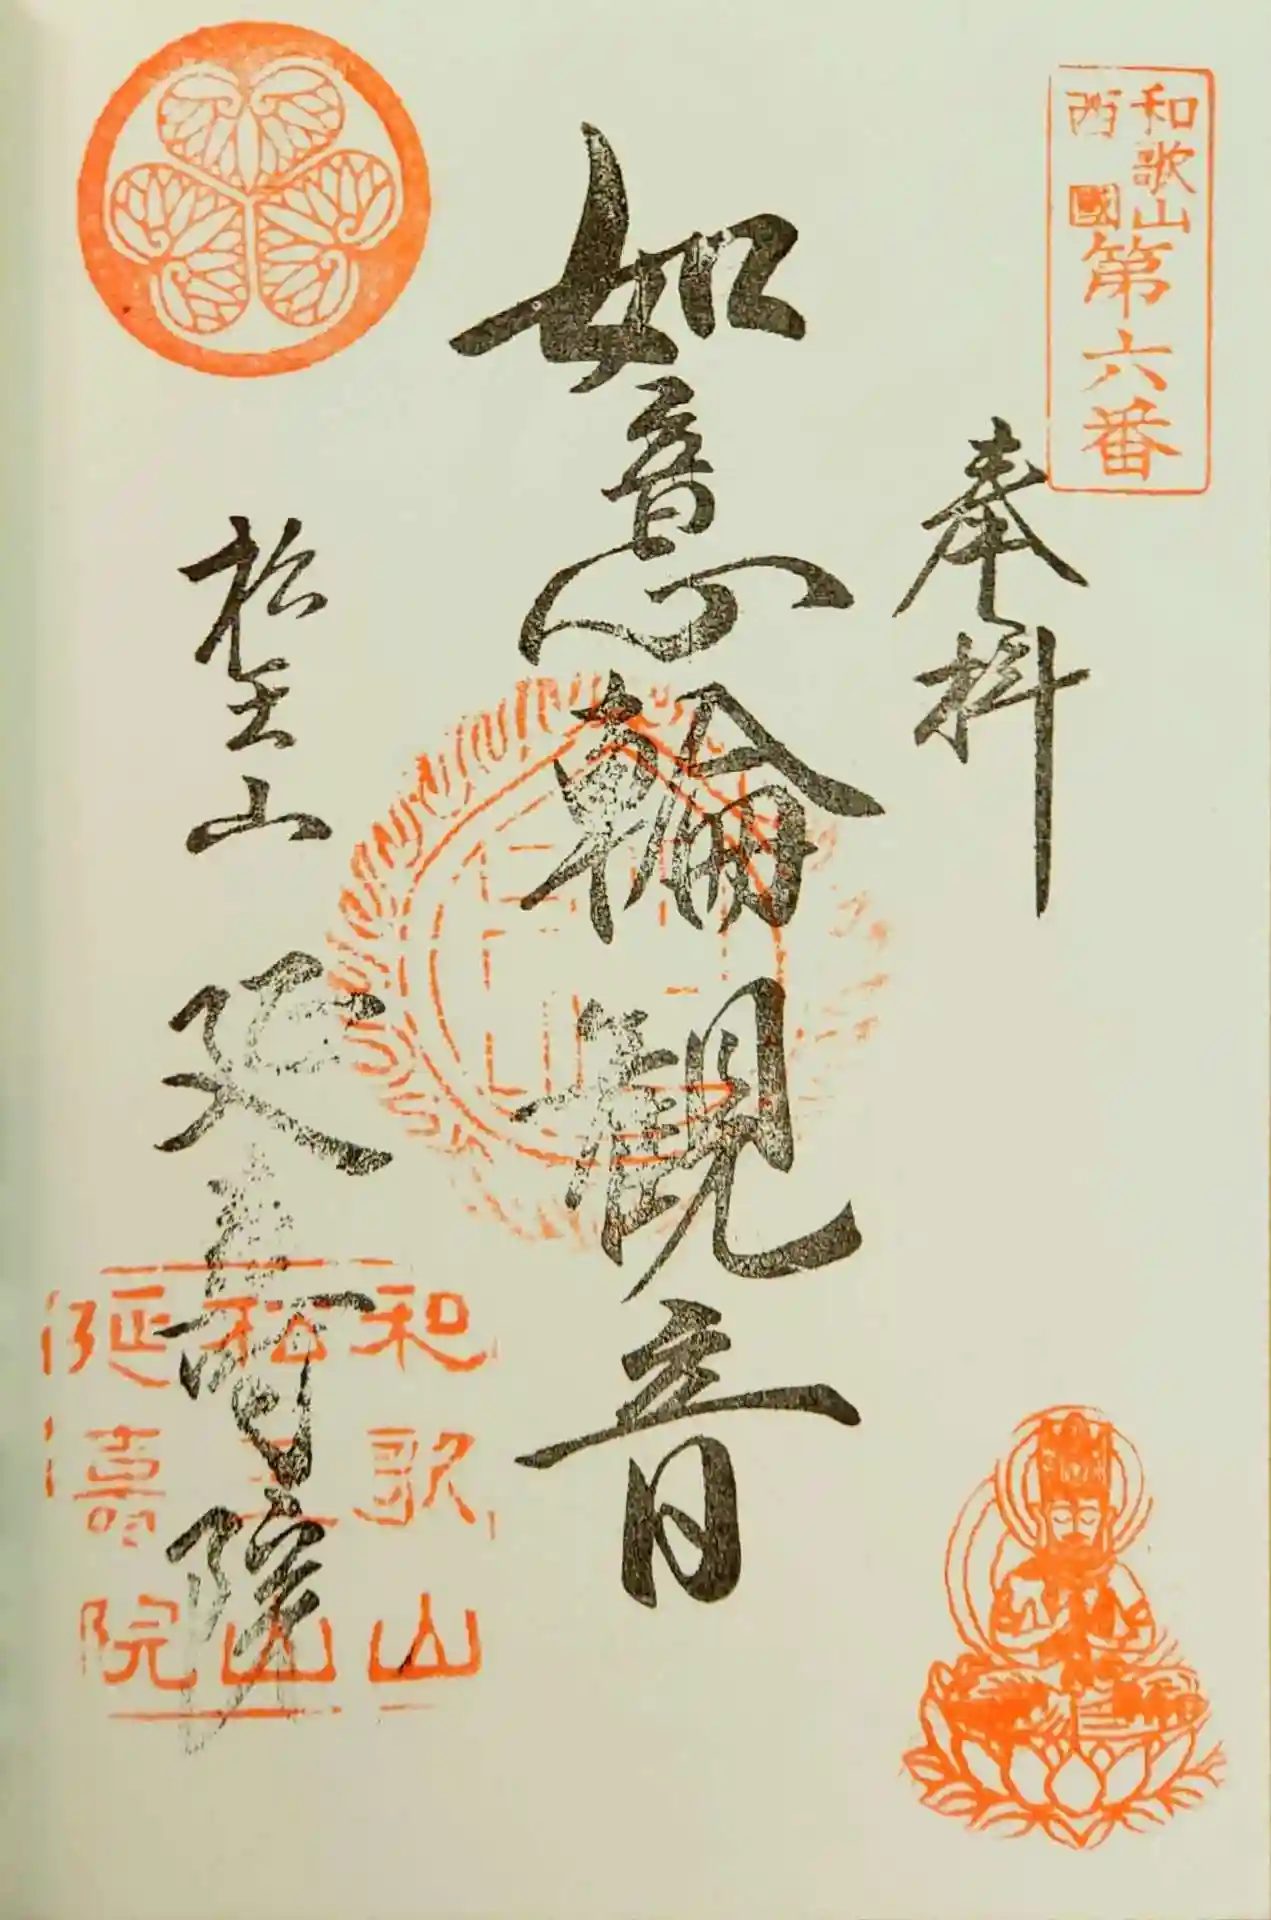 和歌山
西國
第六番
奉拝
如意輪観音
松生山
延壽院
和歌山
松生山
延壽院